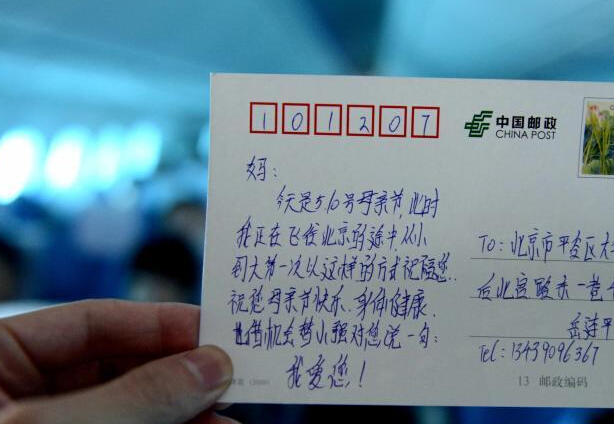 101207
中国邮政
CHINA POST
妈：
今天是5.10号母亲节,此时
我正在飞往北京的途中从小
到大第一次以这样的方式祝福您.
祝您母亲节快乐.身体健康.
也借机会梦小强对您说一句:
我爱您!
To:北京市平谷区
后北宫
Tel:13439096367
13 邮政编码